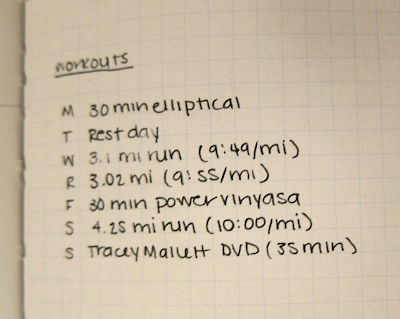 workouts
M 30 min elliptical
T Rest day
W 3.1 mi run (9:49/mi)
R 3.02 mi (9:55/mi)
F 30 min power vinyasa
S 4.25 mi run (10:00/mi)
S Tracey Mallett DVD (35 min)